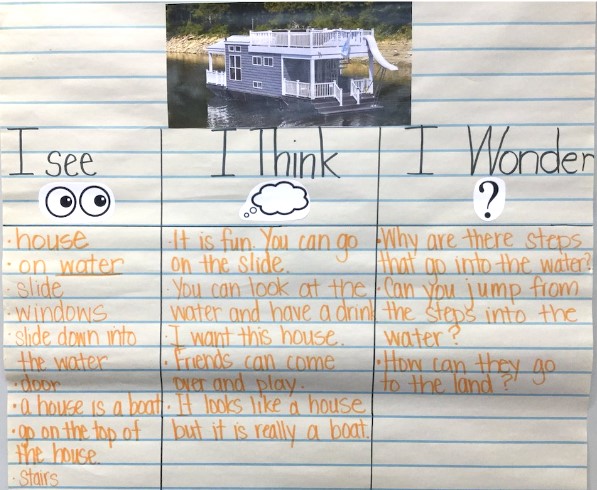 I see
·house
·on water
·slide
·windows
·slide down into
the water
·door
·a house is a boat
·go on the top of
the house.
·stairs
I Think
·It is fun. You can go
on the slide.
·You can look at the
water and have a drink
·I want this house.
·Friends can come
over and play.
·It looks like a house
but it is really a boat.
I Wonder
?
·Why are there steps
that go into the water?
·Can you jump from
the steps into the
water?
·How can they go
to the land?